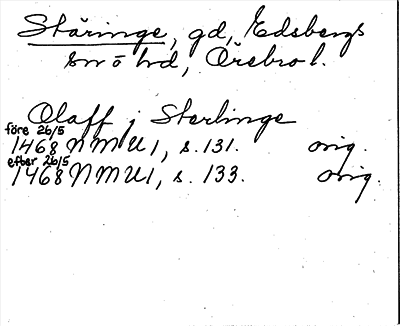 Stäringe, gd, Edsbergs
sn ö hd, Örebro l.
Olaff j Sterlinge
före 26/5
1468 NMU1, s. 131. orig.
efter 26/5
1468 NMU1, s. 133. orig.